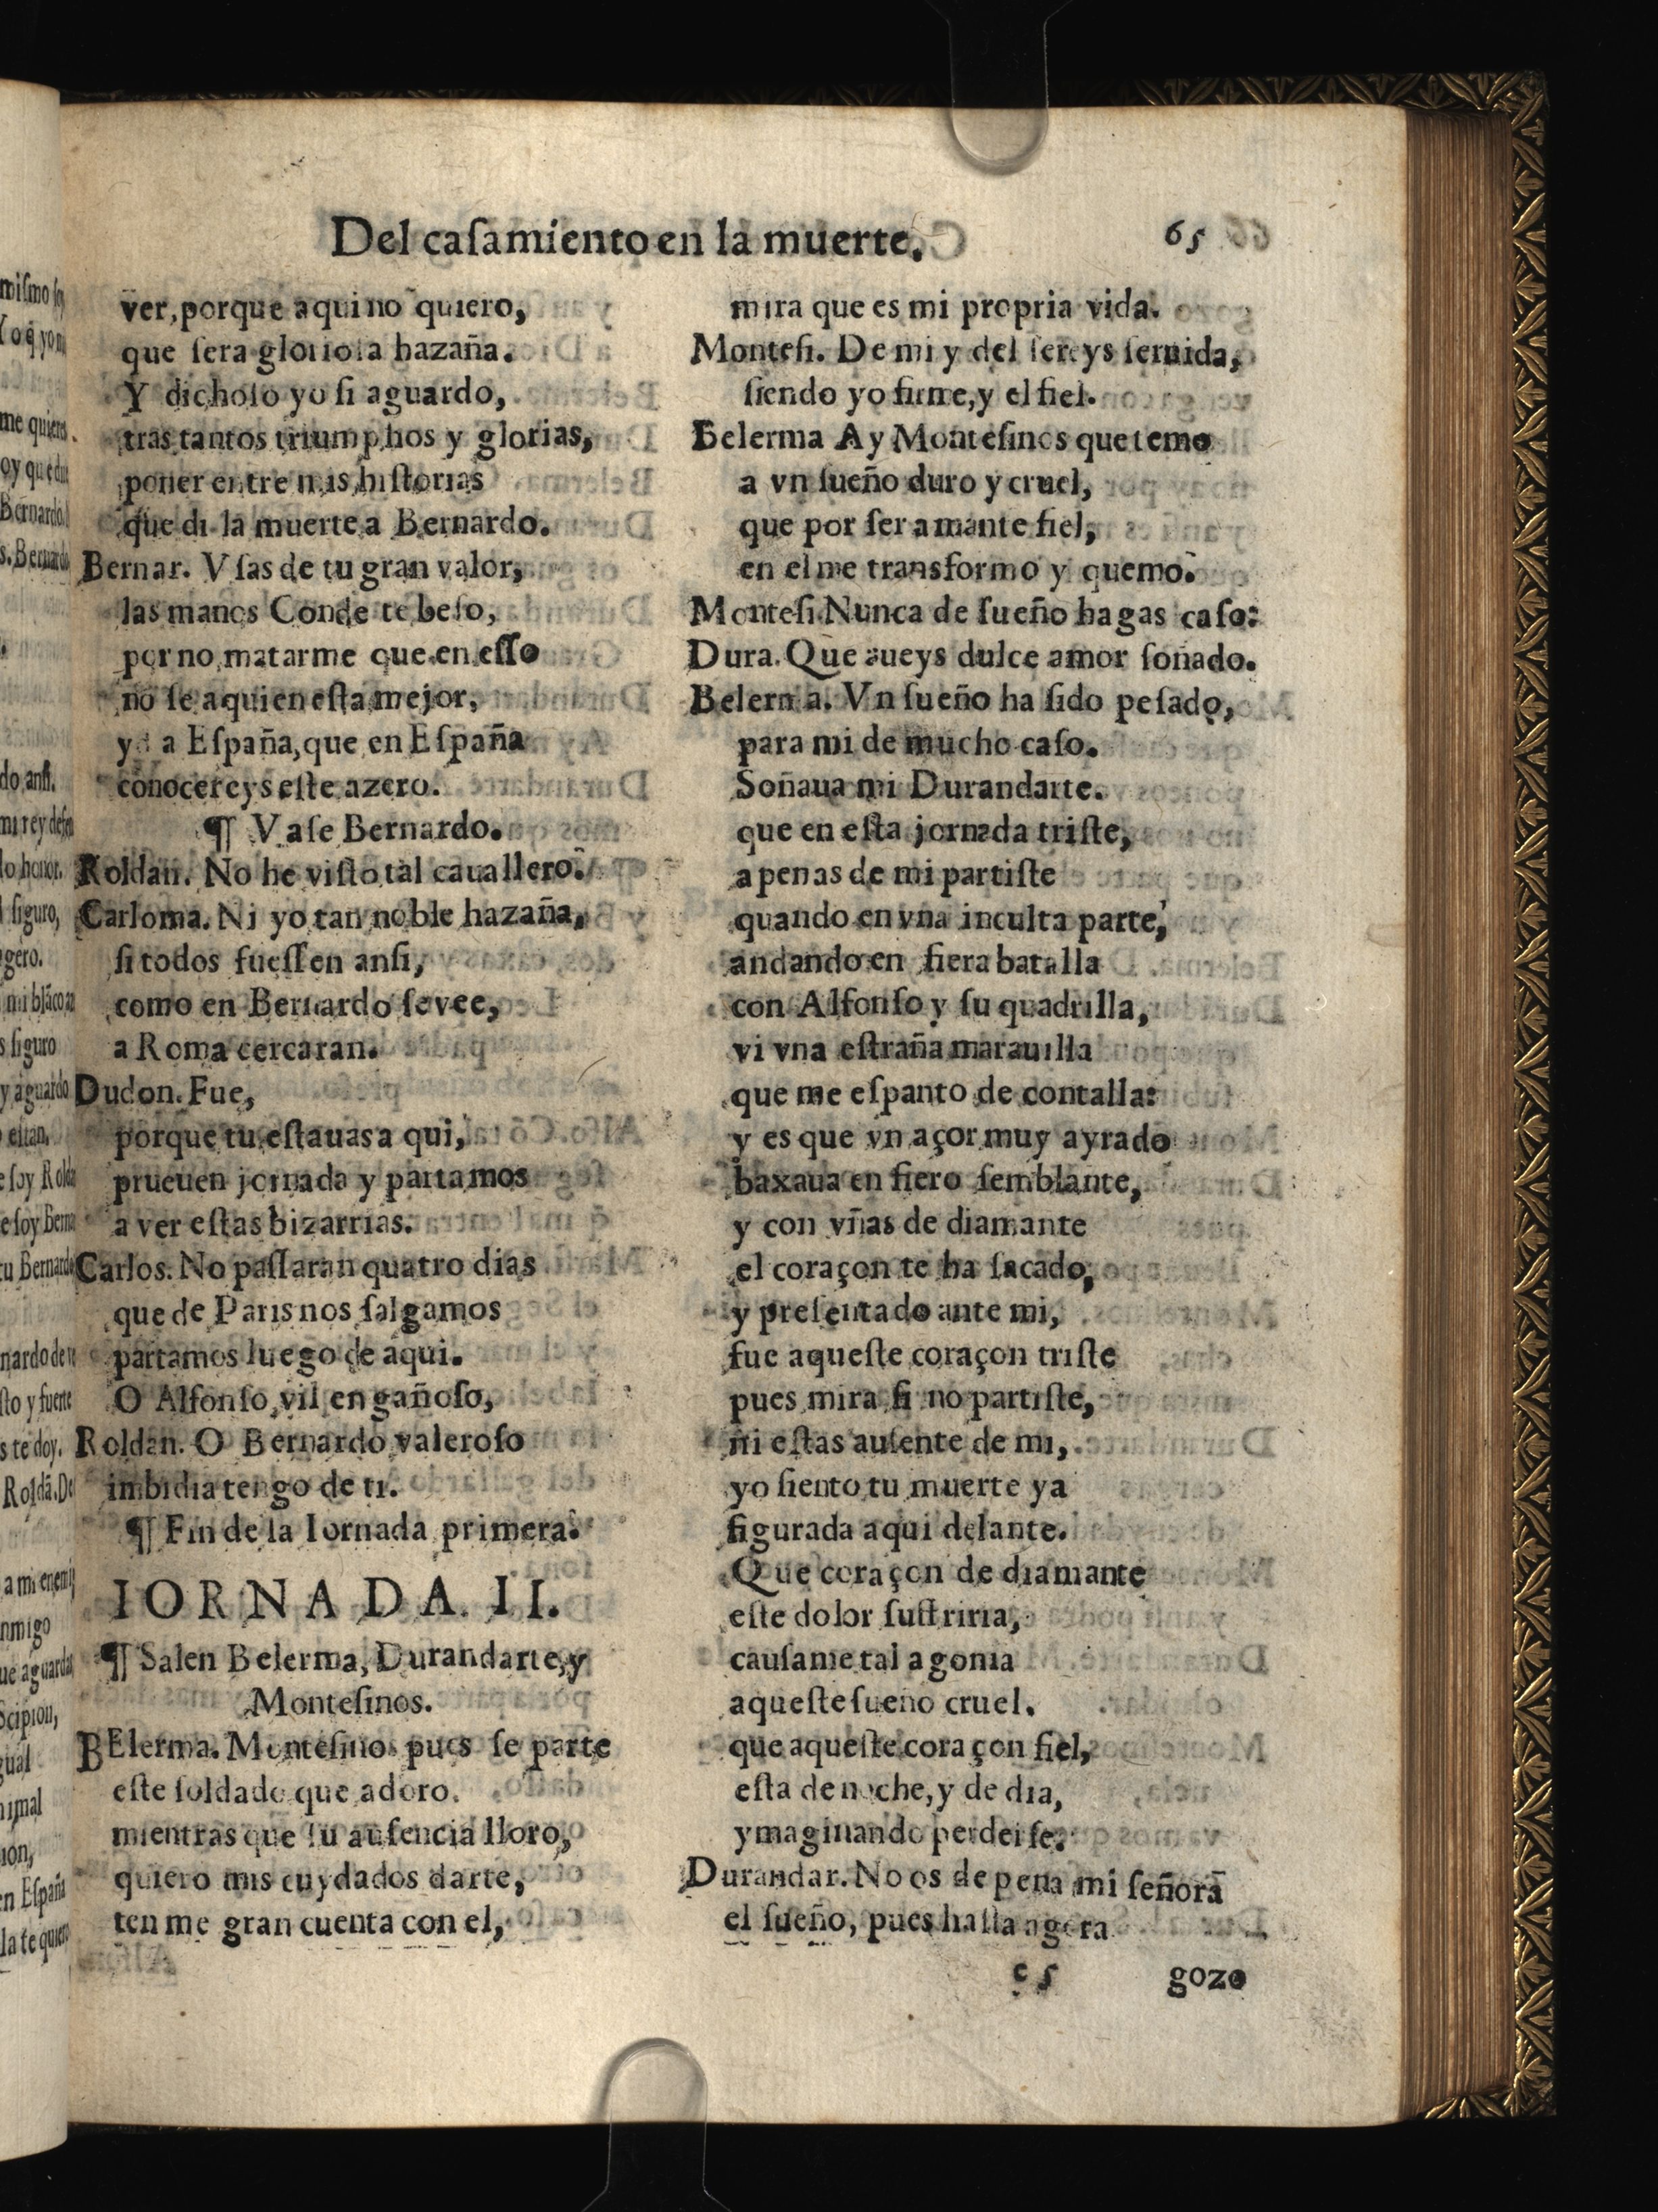 Del caſamiento en la muerte.
65
ver, porque aqui no quiero,
que ſera glorioſa hazaña.
Y dichoſo yo ſi aguardo,
tras tantos triumphos y glorias,
poner entre mis hiſtorias
que di la muerte a Bernardo.
Bernar. Vſas de tu gran valor,
las manos Conde te beſo,
por no matarme que en eſſo
no ſe a quien eſta mejor,
yd a Eſpaña, que en Eſpaña
conocereys eſte azero.
¶ Vaſe Bernardo.
Roldan. No he viſto tal cauallero.
Carloma. Ni yo tan noble hazaña,
ſi todos fueſſen anſi,
como en Bernardo ſe vee,
a Roma cercaran.
Dudon. Fue,
porque tu eſtauas a qui,
prueuen jornada y partamos
a ver eſtas bizarrias.
Carlos. No paſſaran quatro dias
que de Paris nos ſalgamos
partamos luego de aqui.
O Alfonſo vil engañoſo,
Roldan. O Bernardo valeroſo
imbidia tengo de ti.
¶ Fin de la Iornada primera.
IORNADA. II.
¶ Salen Belerma, Durandarte, y
Monteſinos.
BElerma. Monteſinos pues ſe parte
eſte ſoldado que adoro.
mientras que ſu auſencia lloro,
quiero mis cuydados darte,
ten me gran cuenta con el,
mira que es mi propria vida.
Monteſi. De mi y del ſereys ſeruida,
ſiendo yo firme, y el fiel.
Belerma Ay Monteſinos que temo
a vn ſueño duro y cruel,
que por ſer amante fiel,
en el me transformo y quemo.
Monteſi. Nunca de ſueño hagas caſo:
Dura. Que aueys dulce amor ſoñado.
Belerma. Vn ſueño ha ſido peſado,
para mi de mucho caſo.
Soñaua mi Durandarte.
que en eſta jornada triſte,
apenas de mi partiſte
quando en vna inculta parte,
andando en fiera batalla
con Alfonſo y ſu quadrilla,
vi vna eſtraña marauilla
que me eſpanto de contalla:
y es que vn açor muy ayrado
baxaua en fiero ſemblante,
y con vñas de diamante
el coraçon te ha ſacado,
y preſentado ante mi,
fue aqueſte coraçon triſte
pues mira ſi no partiſte,
ni eſtas auſente de mi,
yo ſiento tu muerte ya
figurada aqui delante.
Que coraçon de diamante
eſte dolor ſuffriria,
cauſame tal agonia
aqueſte ſueño cruel.
que aqueſte coraçon fiel,
eſta de noche, y de dia,
ymaginando perderſe.
Durandar. No os de pena mi ſeñora
el ſueño, pues haſta agora
gozo